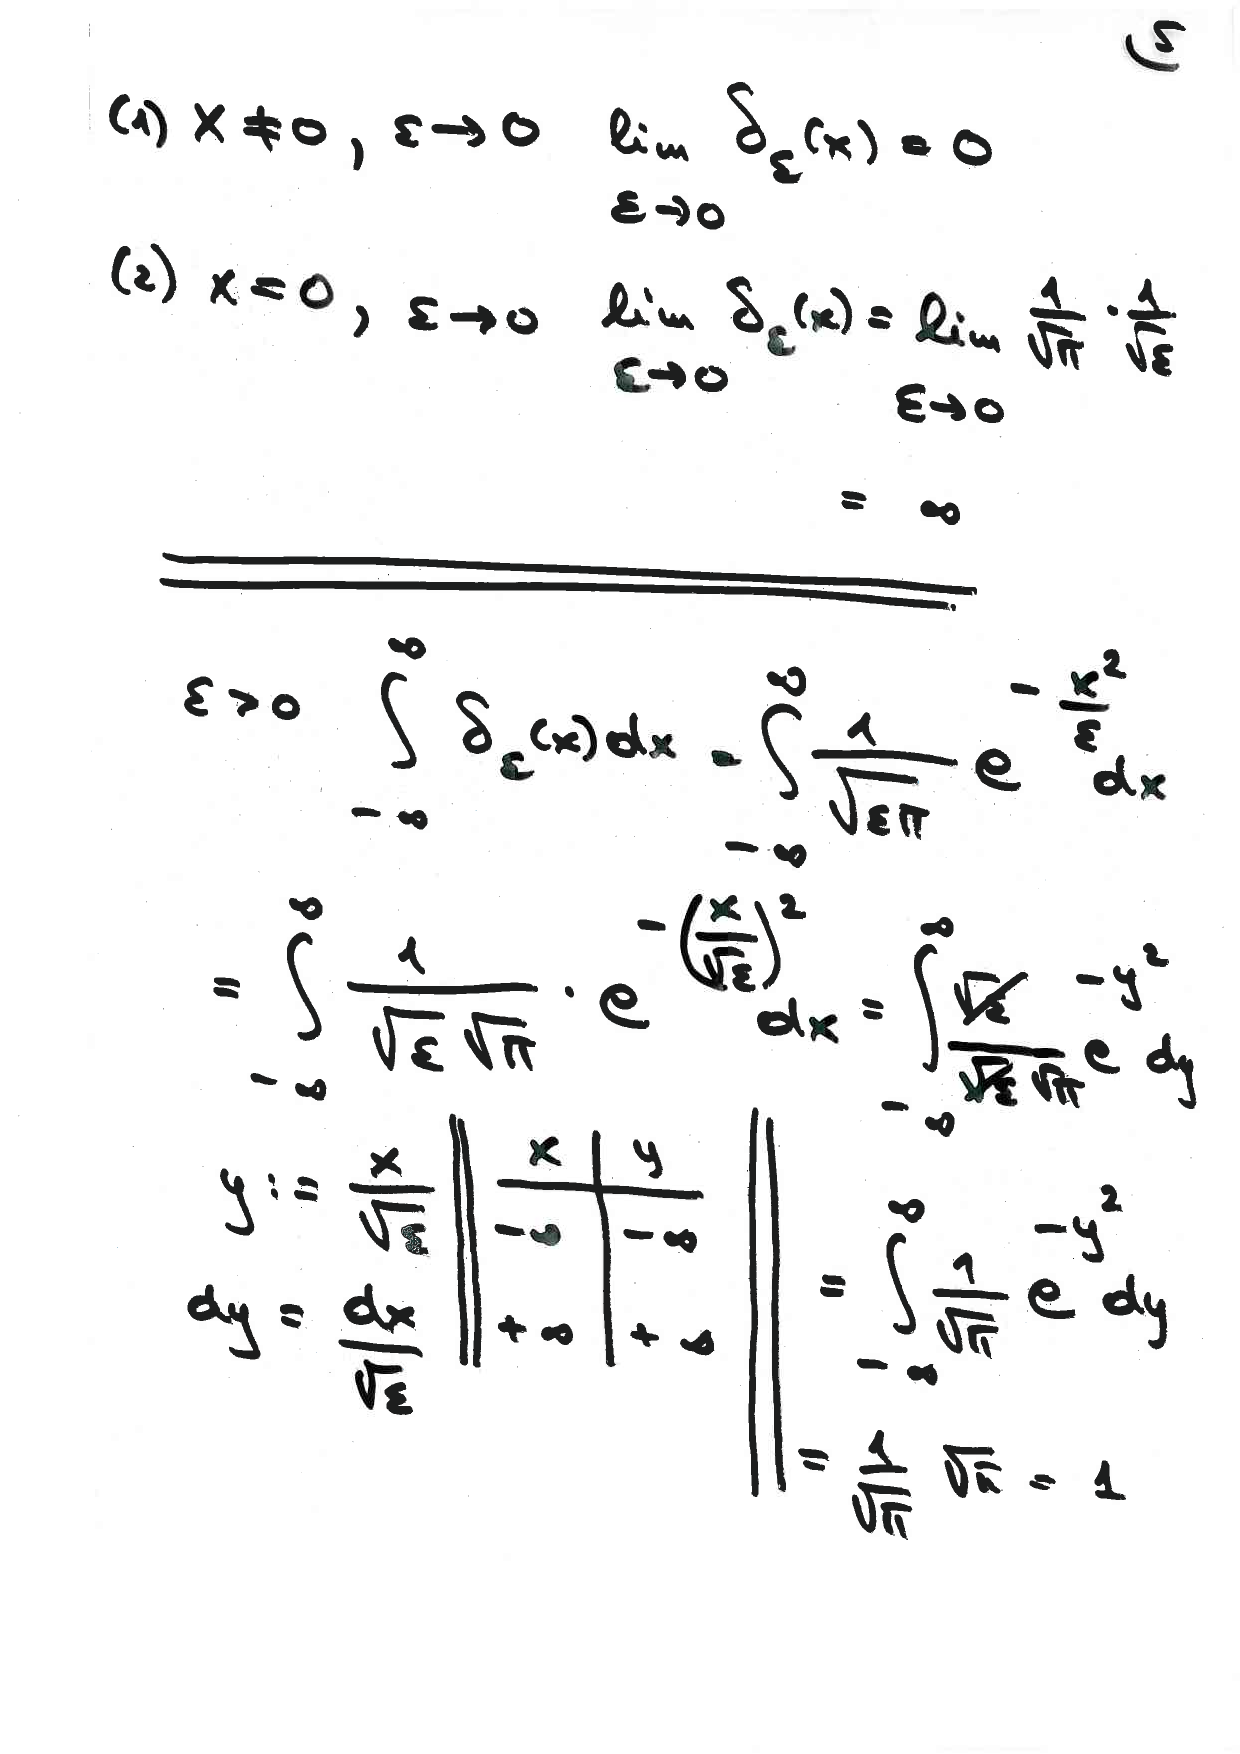 5
(1) x ≠ 0, ε → 0 lim_{ε→0} δ_ε(x) = 0
(2) x = 0, ε → 0 lim_{ε→0} δ_ε(x) = lim_{ε→0} 1/√π · 1/√ε
= ∞
ε > 0 ∫_{-∞}^{∞} δ_ε(x) dx = ∫_{-∞}^{∞} 1/√(επ) e^{-x²/ε} dx
= ∫_{-∞}^{∞} 1/(√ε √π) · e^{-(x/√ε)²} dx = ∫_{-∞}^{∞} √ε/(√ε √π) e^{-y²} dy
y := x/√ε || x | y ||
-∞ | -∞ = ∫_{-∞}^{∞} 1/√π e^{-y²} dy
dy = dx/√ε || +∞ | +∞ ||
= 1/√π √π = 1